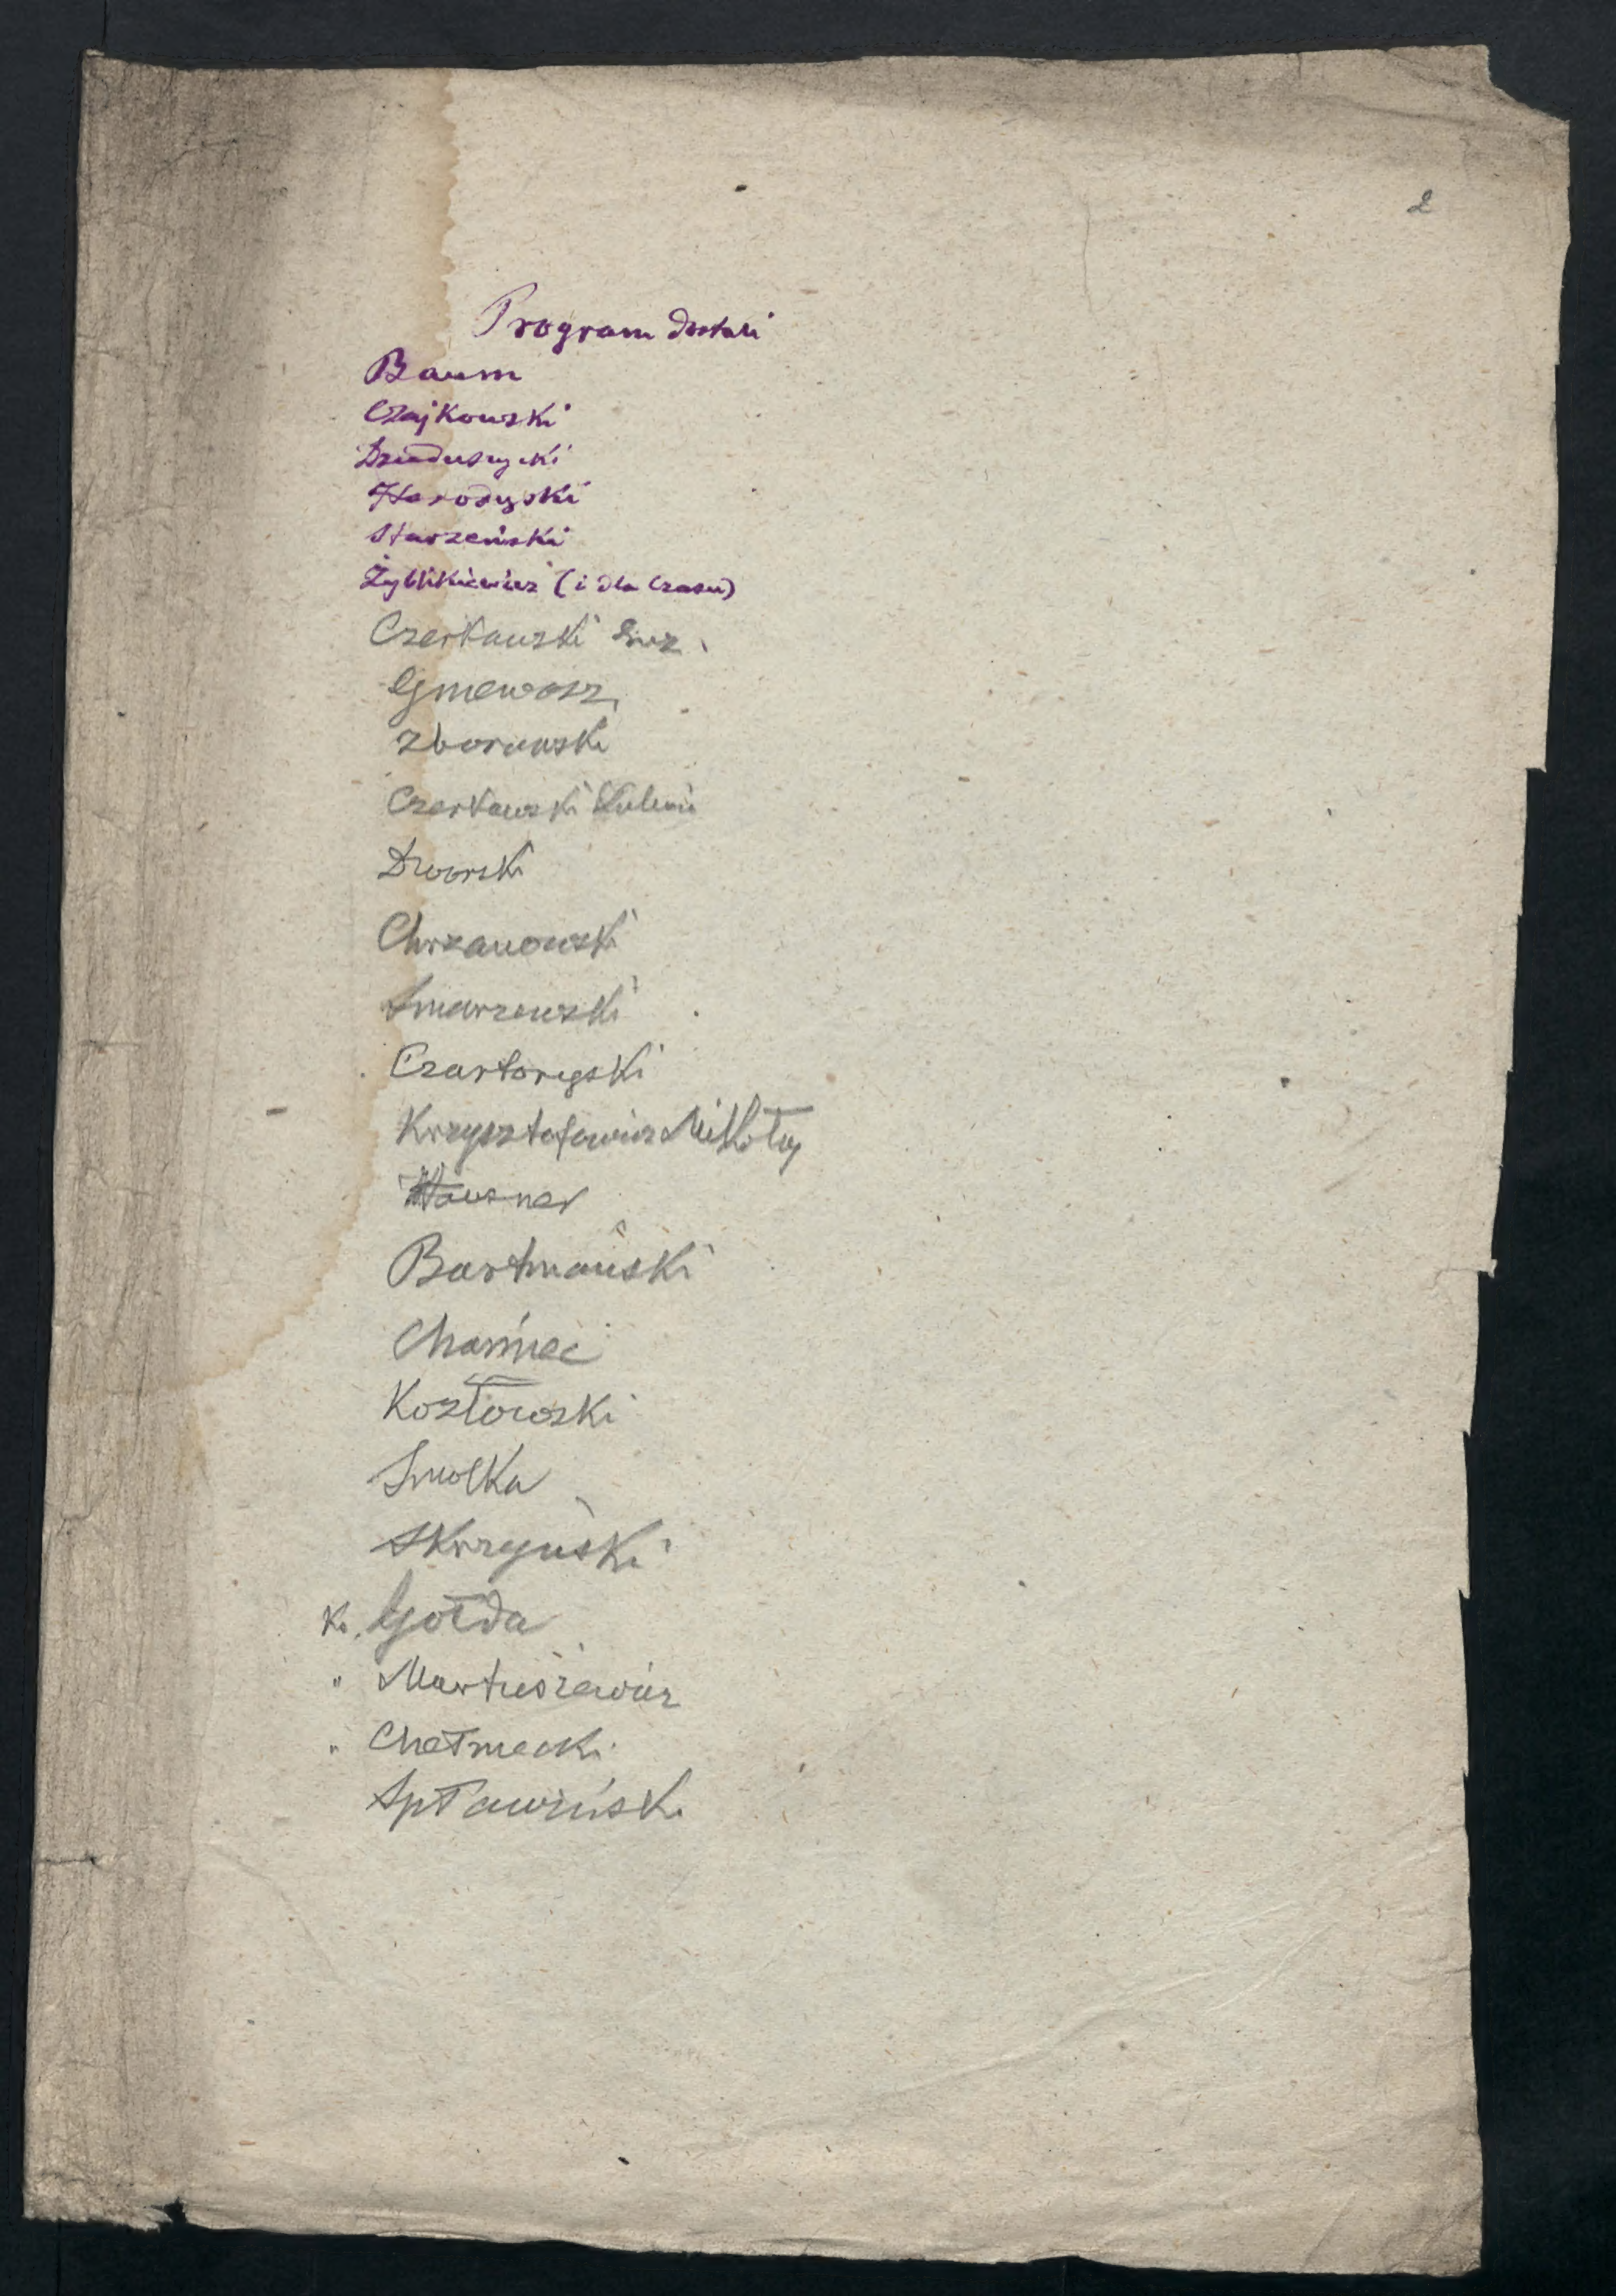 2
Program dostali
Baum
Czajkowski
Dzieduszycki
Horodyski
Starzeński
Zyblikiewicz (i dla Czasu)
Czerkawski Euz.
Gniewosz
Zborowski
Czerkawski Julian
Dworski
Chrzanowski
Smarzewski
Czartoryski
Krzysztofowicz Mikołaj
Hausner
Bartmański
Chamiec
Kozłowski
Smolka
Skrzyński
Ks. Gołda
" Martusiewicz
" Chełmecki
Spławiński